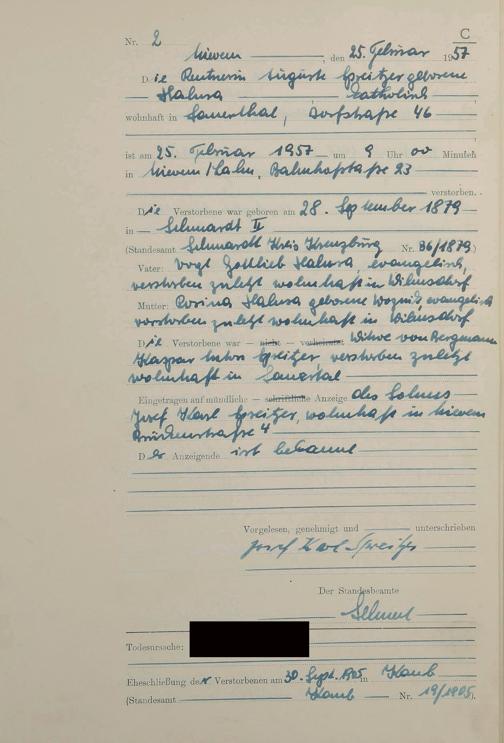 C
Nr. 2
Nievern, den 25. Februar 1957
Die Rentnerin Auguste Spreitzer geborene
— Halusa — katholisch
wohnhaft in Sauerthal, Dorfstraße 46
ist am 25. Februar 1957 — um 9 Uhr 00 Minuten
in Nievern/Lahn, Bahnhofstraße 23
verstorben.
Die Verstorbene war geboren am 28. September 1879
in — Schmardt II
(Standesamt Schmardt Kreis Kreuzburg Nr. 36/1879)
Vater: Vogt Gottlieb Halusa, evangelisch,
verstorben zuletzt wohnhaft in Wilmsdorf
Mutter: Rosina Halusa geborene Woznik evangelisch
verstorben zuletzt wohnhaft in Wilmsdorf
Die Verstorbene war — nicht — verheiratet Witwe von Bergmann
Kaspar Anton Spreitzer verstorben zuletzt
wohnhaft in Sauertal
Eingetragen auf mündliche — schriftliche Anzeige des Sohnes
Josef Karl Spreitzer, wohnhaft in Nievern
Brückenstraße 4
Der Anzeigende ist bekannt
Vorgelesen, genehmigt und unterschrieben
Josef Karl Spreitzer
Der Standesbeamte
Todesursache:
Eheschließung der Verstorbenen am 30. Sept. 1905 in Kaub
(Standesamt Kaub Nr. 19/1905).